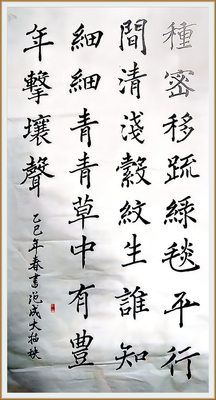 種密移疏綠毯平行
間清淺縠紋生誰知
細細青青草中有豊
年擊壤聲
乙巳年春書范成大插秧